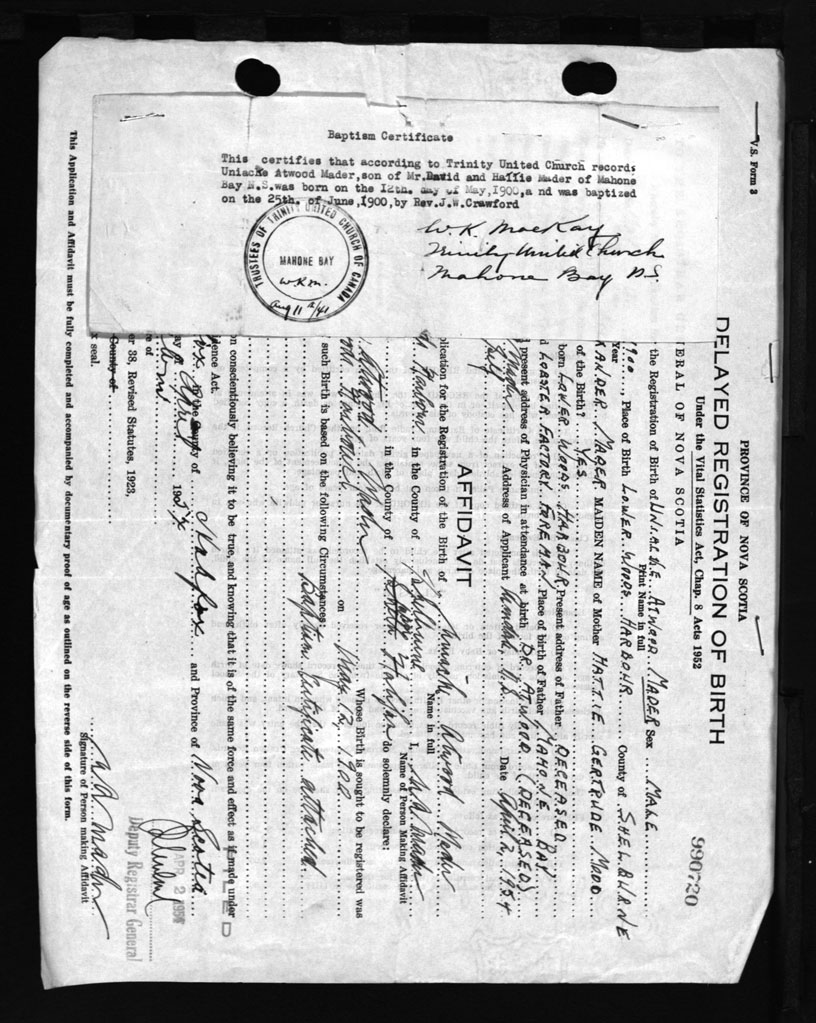 Baptism Certificate
This certifies that according to Trinity United Church records
Uniacke Atwood Mader, son of Mr. David and Hallie Mader of Mahone
Bay N.S. was born on the 12th. day of May, 1900, a nd was baptized
on the 25th. of June, 1900, by Rev. J.W. Crawford
W. K. MacKay
Trinity United Church
Mahone Bay N.S.
TRUSTEES OF TRINITY UNITED CHURCH OF CANADA
MAHONE BAY
W.K.M.
Aug 11th/41
V.S. Form 3
990720
PROVINCE OF NOVA SCOTIA
DELAYED REGISTRATION OF BIRTH
Under the Vital Statistics Act, Chap. 8 Acts 1952
ERAL OF NOVA SCOTIA
the Registration of Birth of UNIACKE ATWOOD MADER Sex MALE
Print Name in full
1900, Place of Birth LOWER WOODS HARBOUR County of SHELBURNE
Year
XANDER MADER MAIDEN NAME of Mother HATTIE GERTRUDE MOOD
of the Birth? YES
born LOWER WOODS HARBOUR Present address of Father DECEASED
LOBSTER FACTORY FOREMAN Place of birth of Father MAHONE BAY
present address of Physician in attendance at birth DR. ATWOOD (DECEASED)
Mader Address of Applicant N.S. Date April 2, 1954
Self
AFFIDAVIT
plication for the Registration of the Birth of Uniacke Atwood Mader
Name in full
Harbour in the County of Shelburne I, U. A. Mader
Name of Person Making Affidavit
in the County of Halifax do solemnly declare:
Atwood Mader Whose Birth is sought to be registered was
Harbour on May 12, 1900
such Birth is based on the following Circumstances:
Baptism Certificate attached
on conscientiously believing it to be true, and knowing that it is of the same force and effect as if made under
dence Act.
the County of Halifax and Province of Nova Scotia
ay of April 1954
County of
er 38, Revised Statutes, 1923,
x seal.
APR 2
Deputy Registrar General
U. A. Mader
Signature of Person making Affidavit
This Application and Affidavit must be fully completed and accompanied by documentary proof of age as outlined on the reverse side of this form.